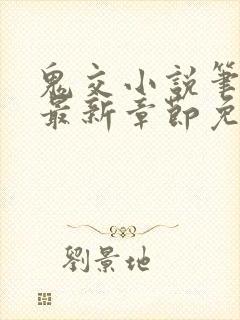 鬼交小説筆
最新章節免
劉景地